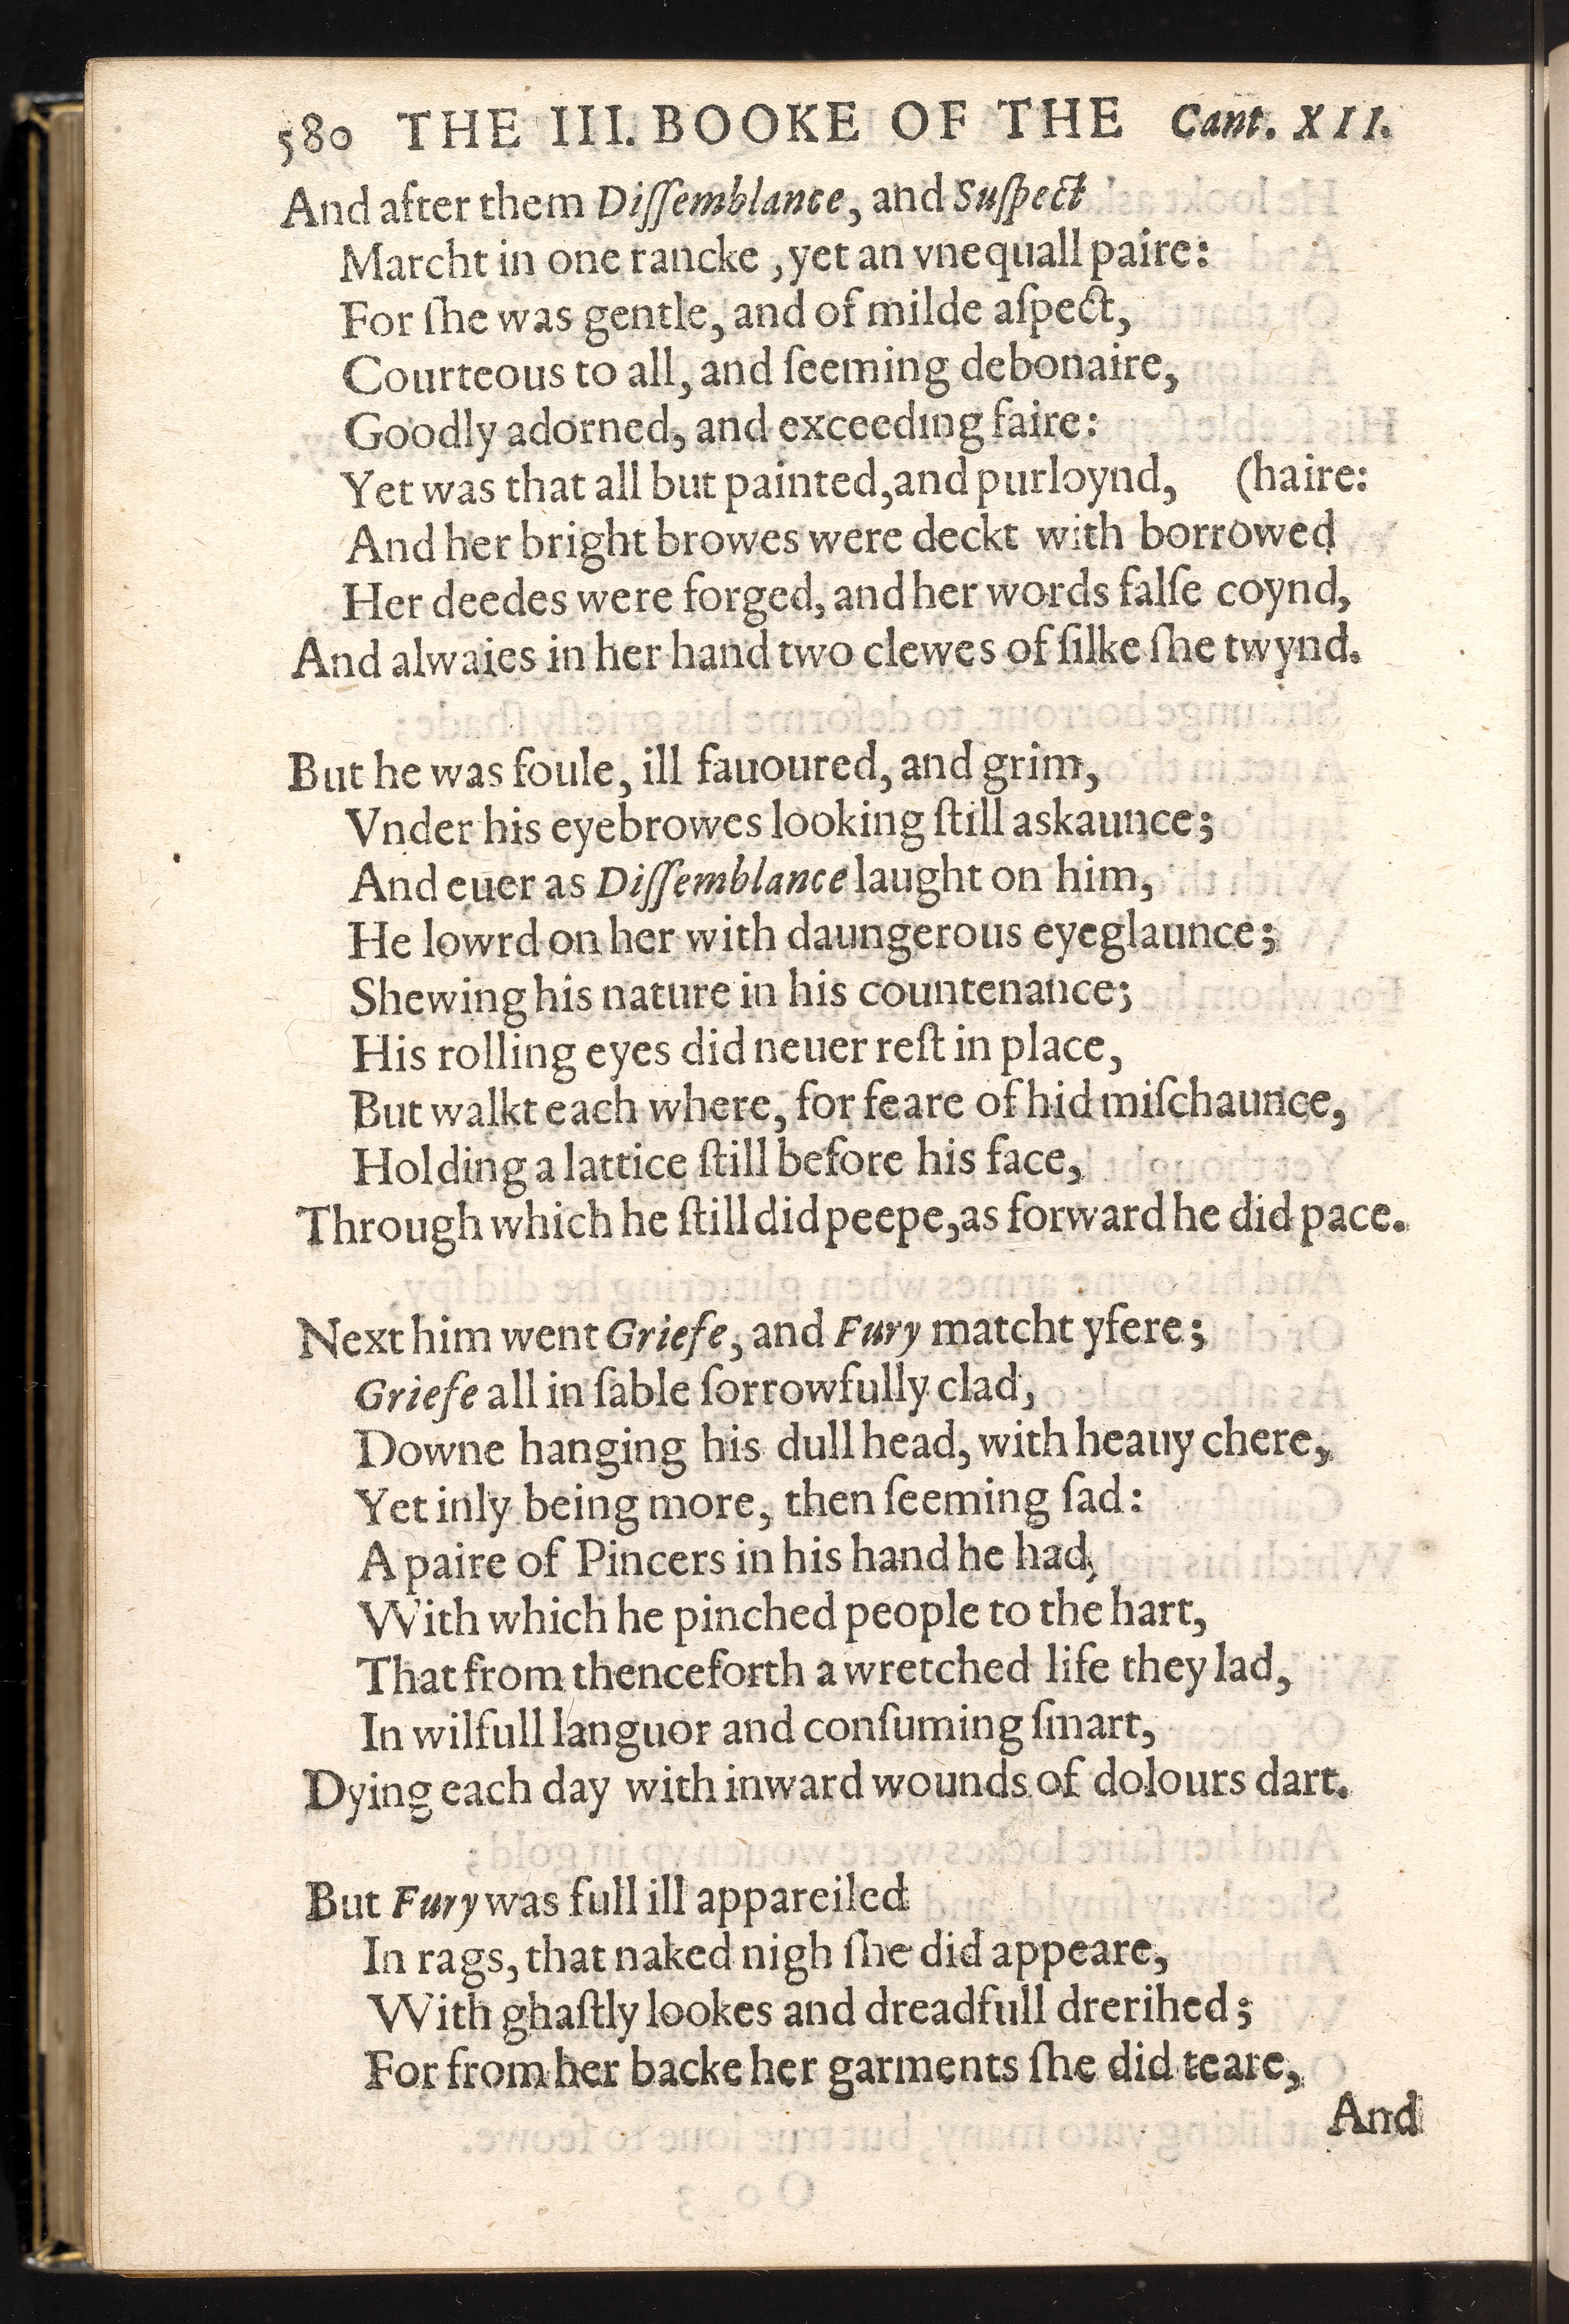 580 THE III. BOOKE OF THE Cant. XII.
And after them Diſſemblance, and Suſpect
Marcht in one rancke, yet an vnequall paire:
For ſhe was gentle, and of milde aſpect,
Courteous to all, and ſeeming debonaire,
Goodly adorned, and exceeding faire:
Yet was that all but painted, and purloynd, (haire:
And her bright browes were deckt with borrowed
Her deedes were forged, and her words falſe coynd,
And alwaies in her hand two clewes of ſilke ſhe twynd.
But he was foule, ill fauoured, and grim,
Vnder his eyebrowes looking ſtill askaunce;
And euer as Diſſemblance laught on him,
He lowrd on her with daungerous eyeglaunce;
Shewing his nature in his countenance;
His rolling eyes did neuer reſt in place,
But walkt each where, for feare of hid miſchaunce,
Holding a lattice ſtill before his face,
Through which he ſtill did peepe, as forward he did pace.
Next him went Griefe, and Fury matcht yfere;
Griefe all in ſable ſorrowfully clad,
Downe hanging his dull head, with heauy chere,
Yet inly being more, then ſeeming ſad:
A paire of Pincers in his hand he had,
With which he pinched people to the hart,
That from thenceforth a wretched life they lad,
In wilfull languor and conſuming ſmart,
Dying each day with inward wounds of dolours dart.
But Fury was full ill appareiled
In rags, that naked nigh ſhe did appeare,
With ghaſtly lookes and dreadfull drerihed;
For from her backe her garments ſhe did teare,
And